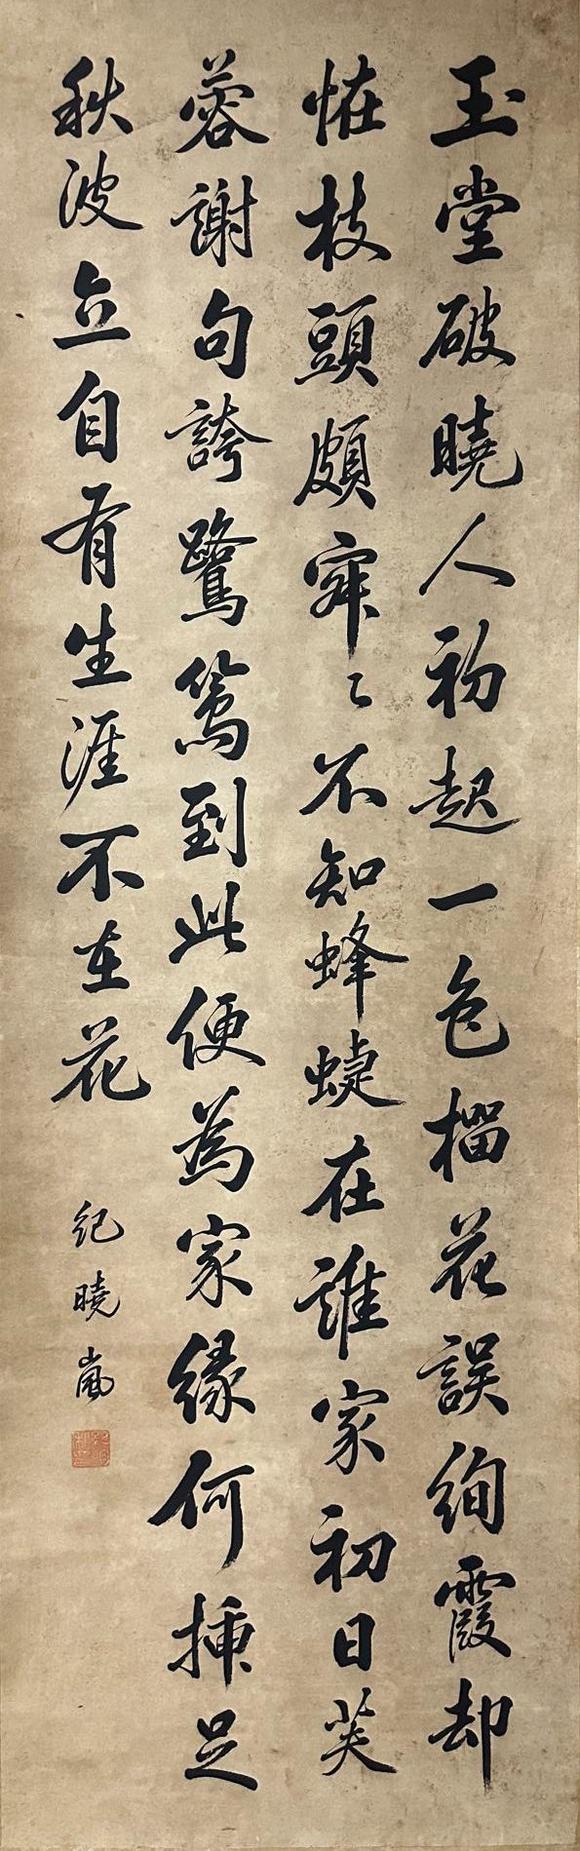 玉堂破曉人初起一色榴花誤絢霞却
怪枝頭頗寂〻不知蜂蜨在誰家初日芙
蓉謝句誇鷺鷥到此便為家緣何插足
秋波立自有生涯不在花
紀曉嵐